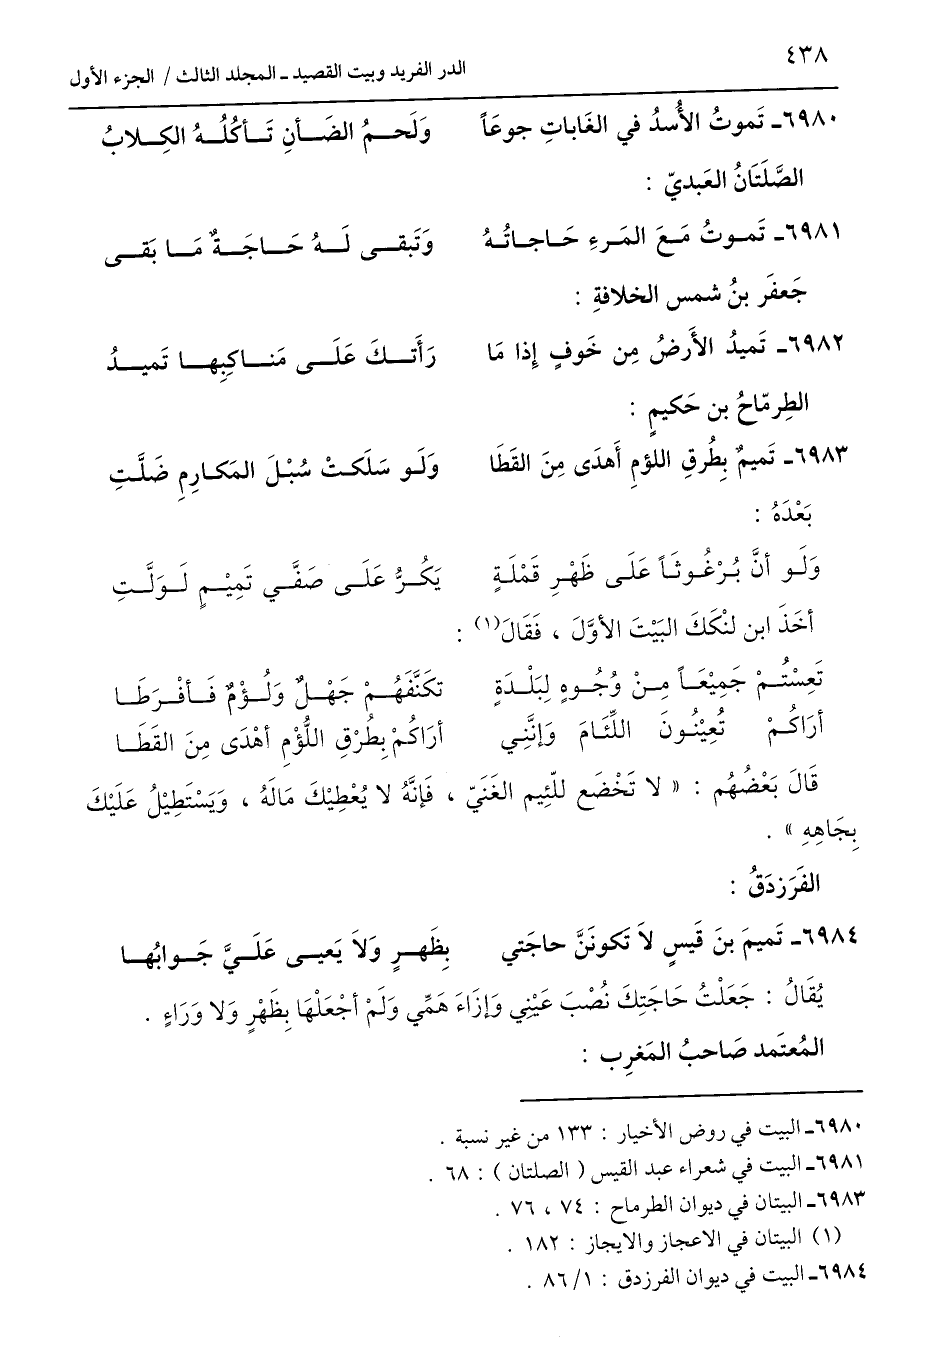 ٤٣٨
الدر الفريد وبيت القصيد ـ المجلد الثالث / الجزء الأول
٦٩٨٠ـ تَموتُ الأُسدُ في الغَاباتِ جوعَاً وَلَحمُ الضَأنِ تَأكُلُهُ الكِلابُ
الصَّلتَانُ العَبديّ :
٦٩٨١ـ تَموتُ مَعَ المَرءِ حَاجاتُهُ وَتَبقى لَهُ حَاجَةٌ مَا بَقى
جَعفَر بنُ شمس الخلافةِ :
٦٩٨٢ـ تَميدُ الأَرضُ مِن خَوفٍ إِذا مَا رَأَتكَ عَلَى مَنَاكِبِها تَميدُ
الطِرمّاحُ بن حَكيمٍ :
٦٩٨٣ـ تَميمٌ بِطُرقِ اللؤمِ أَهدَى مِنَ القَطَا وَلَو سَلَكتْ سُبْلَ المَكارِمِ ضَلَّتِ
بَعْدَهُ :
وَلَو أنَّ بُرْغُوثَاً عَلَى ظَهْرِ قَمْلَةٍ يَكُرُّ عَلَى صَفَّي تَمِيْمٍ لَوَلَّتِ
أخَذَ ابن لنْكَكَ البَيْتَ الأوَّلَ ، فَقَالَ(١) :
تَعِسْتُمْ جَمِيْعَاً مِنْ وُجُوهٍ لِبَلْدَةٍ تكنَّفَهُمْ جَهْلٌ وَلُؤْمٌ فَأفْرَطَا
أرَاكُمْ تُعِيْنُونَ اللِّئَامَ وَإنَّنِي أرَاكُمْ بِطُرْقِ اللُّؤْمِ أهْدَى مِنَ القَطَا
قَالَ بَعْضُهُم : « لا تَخْضَع للَّئِيم الغَنَيّ ، فَإنَّهُ لا يُعْطِيْكَ مَالَهُ ، وَيَسْتَطِيْلُ عَلَيْكَ
بِجَاهِهِ » .
الفَرَزدَقُ :
٦٩٨٤ـ تَميمَ بنَ قَيسٍ لاَ تَكونَنَّ حاجَتي بِظَهرٍ وَلاَ يَعيى عَلَيَّ جَوابُها
يُقَالُ : جَعَلْتُ حَاجَتِكَ نُصْبَ عَيْنِي وَإزَاءَ هَمِّي وَلَمْ أجْعَلْهَا بِظَهْرٍ وَلا وَرَاءٍ .
المُعتَمد صَاحبُ المَغرِب :
٦٩٨٠ـ البيت في روض الأخيار : ١٣٣ من غير نسبة .
٦٩٨١ـ البيت في شعراء عبد القيس ( الصلتان ) : ٦٨ .
٦٩٨٣ـ البيتان في ديوان الطرماح : ٧٤ ، ٧٦ .
(١) البيتان في الاعجاز والايجاز : ١٨٢ .
٦٩٨٤ـ البيت في ديوان الفرزدق : ١/ ٨٦ .